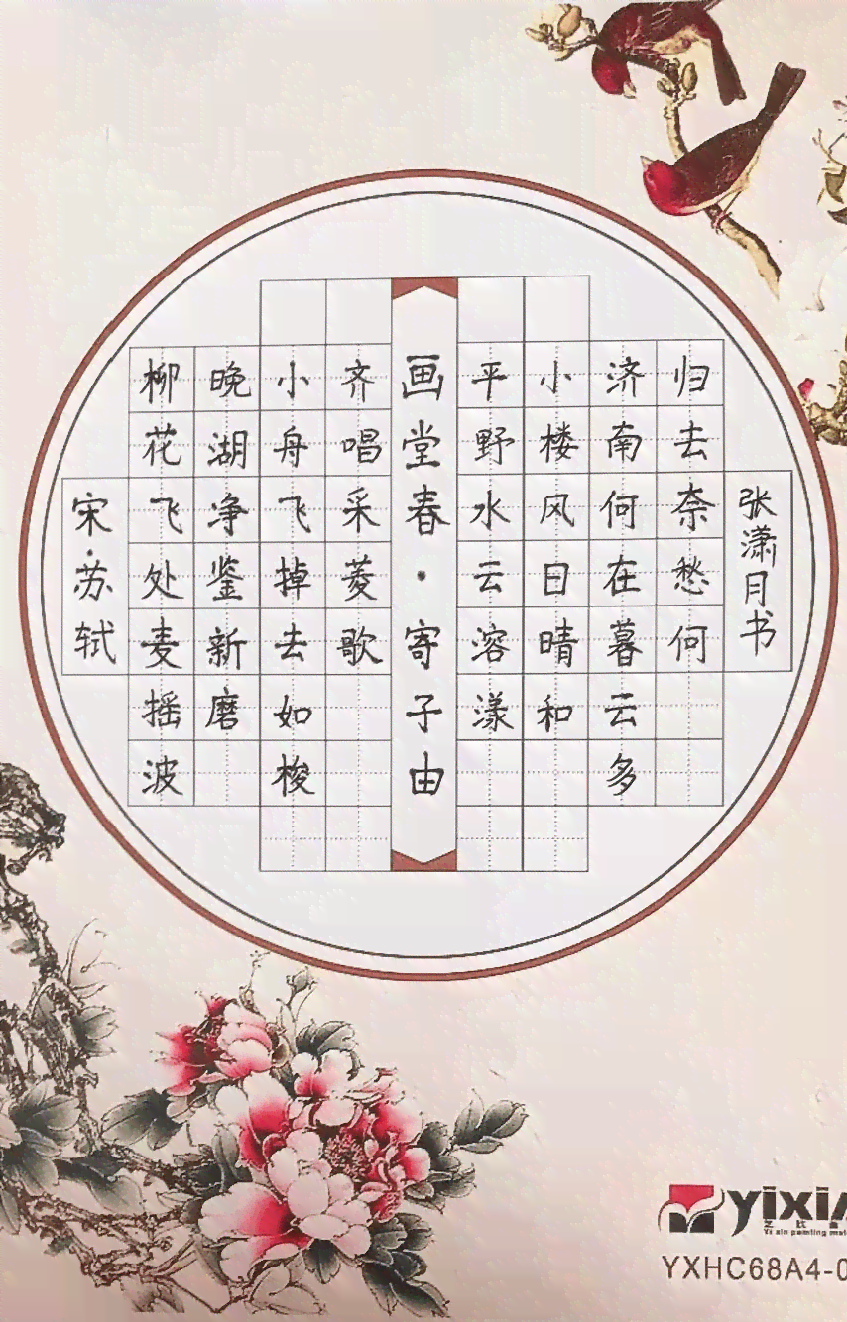 宋·苏轼
柳花飞处麦摇波
晚湖净鉴新磨
小舟飞掉去如梭
齐唱采菱歌
画堂春·寄子由
平野水云溶漾
小楼风日晴和
济南何在暮云多
归去奈愁何
张潇月书
YXHC68A4-0